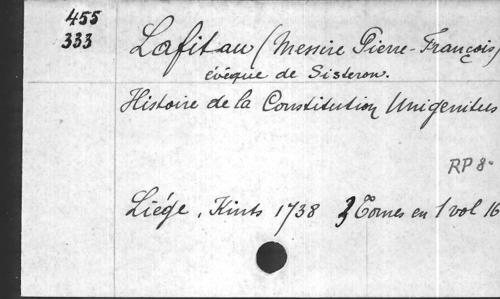 455
333
Lafitau (Messire Pierre-François)
évêque de Sisteron.
Histoire de la Constitution Unigenitus
RP 8°
Liége, Kints 1738 3 Tomes en 1 vol 16